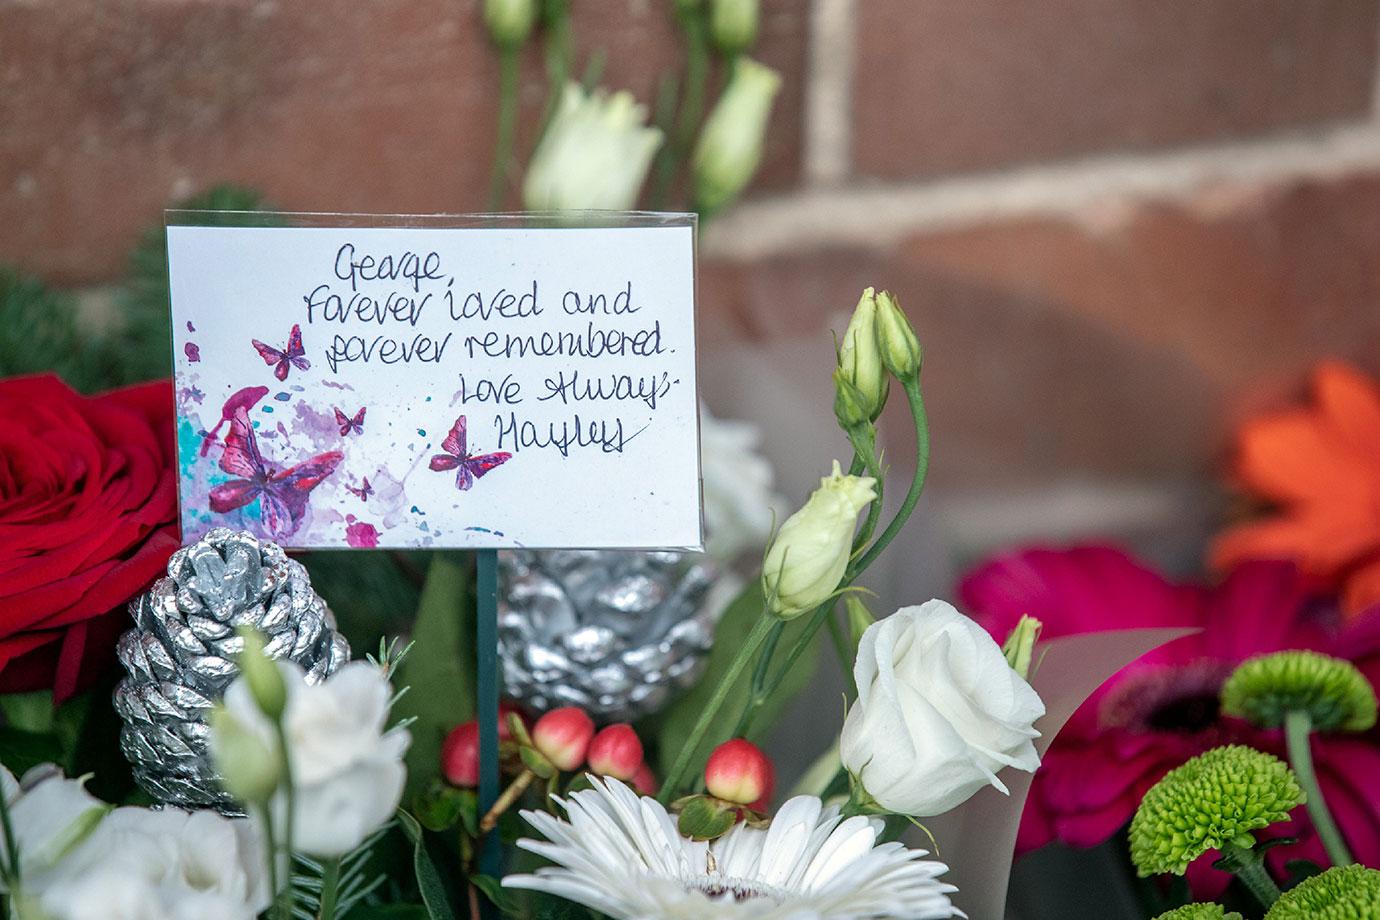 George,
Forever loved and
forever remembered.
Love Always
Hayley